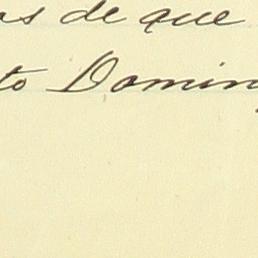 os de que
to Domin